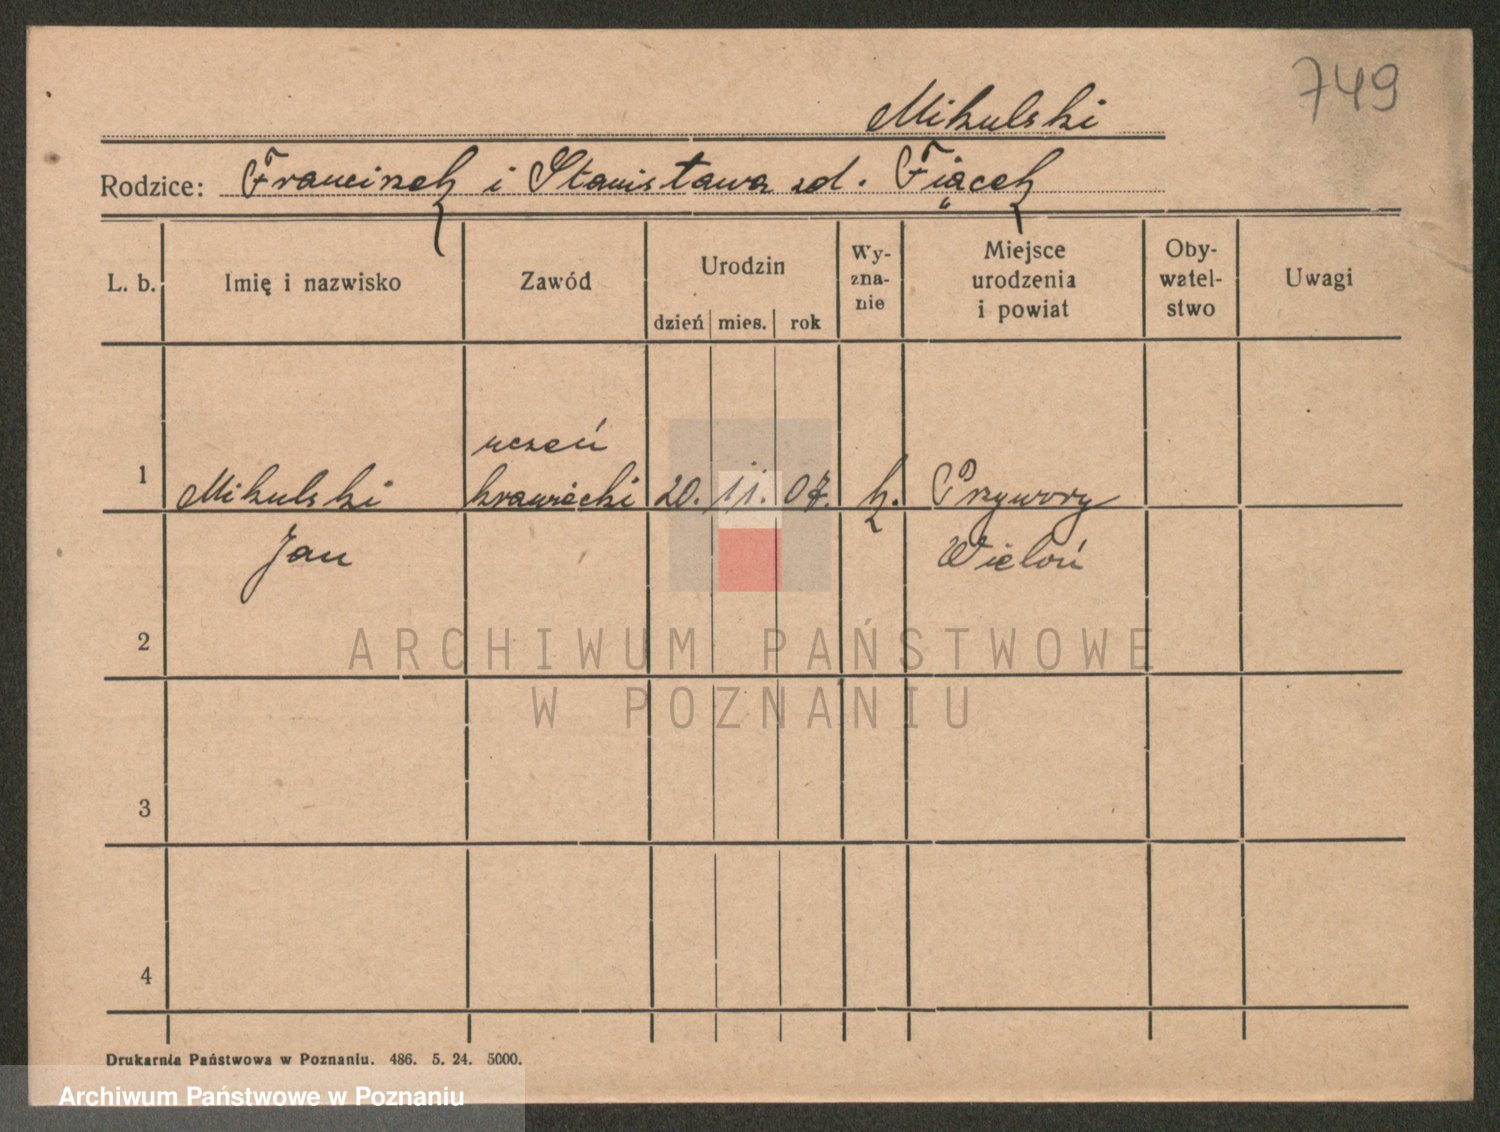 749
Mikulski
Rodzice: Franciszek i Stanisława zd. Fiącek
L. b.
Imię i nazwisko
Zawód
Urodzin
dzień mies. rok
Wy-
zna-
nie
Miejsce
urodzenia
i powiat
Oby-
watel-
stwo
Uwagi
uczeń
1 Mikulski krawiecki 20. 11. 07. k. Przywory
Jan Wieluń
2
ARCHIWUM PAŃSTWOWE
W POZNANIU
3
4
Drukarnia Państwowa w Poznaniu. 486. 5. 24. 5000.
Archiwum Państwowe w Poznaniu